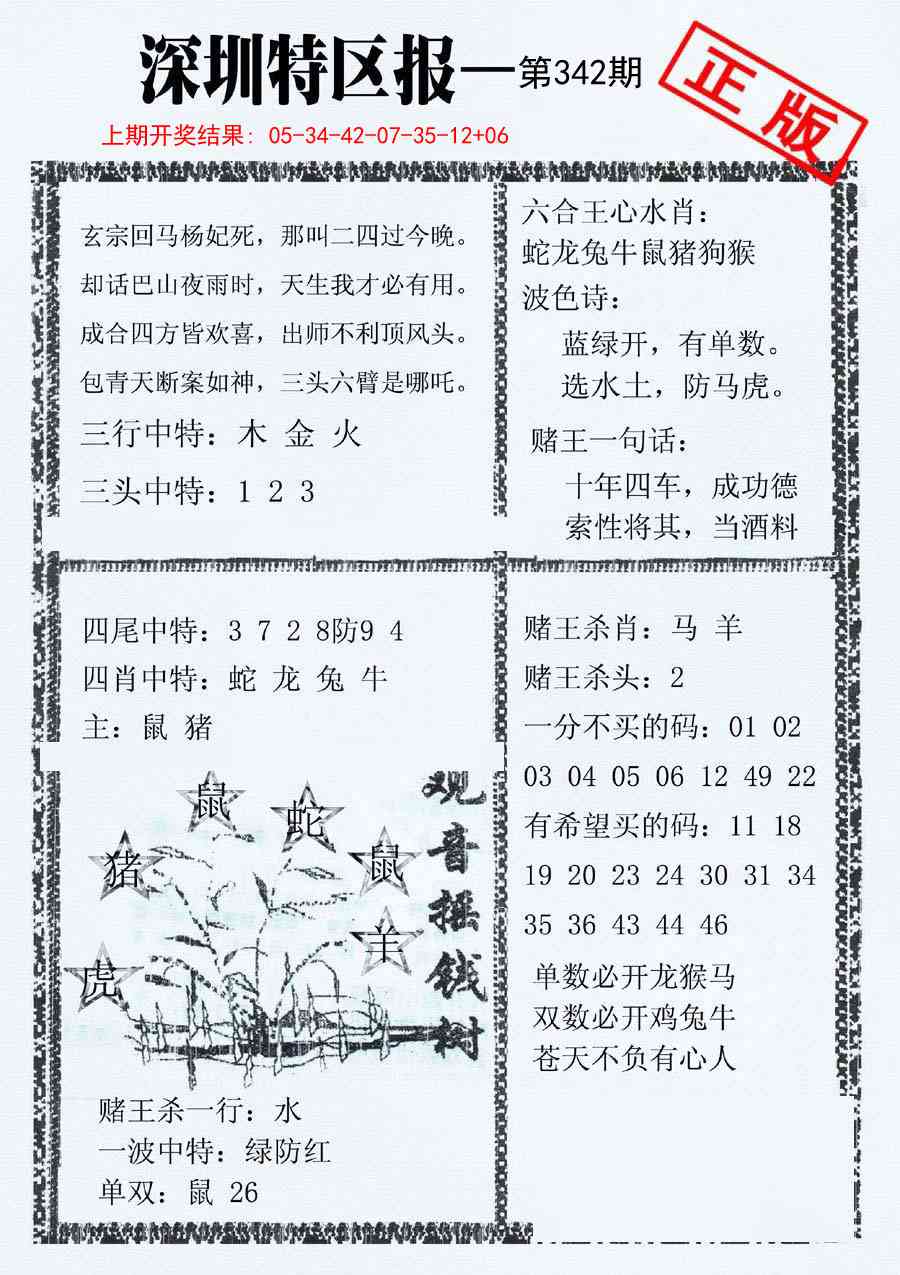 深圳特区报—第342期
正版
上期开奖结果: 05-34-42-07-35-12+06
玄宗回马杨妃死，那叫二四过今晚。
却话巴山夜雨时，天生我才必有用。
成合四方皆欢喜，出师不利顶风头。
包青天断案如神，三头六臂是哪吒。
三行中特：木 金 火
三头中特：1 2 3
六合王心水肖：
蛇龙兔牛鼠猪狗猴
波色诗：
蓝绿开，有单数。
选水土，防马虎。
赌王一句话：
十年四车，成功德
索性将其，当酒料
四尾中特：3 7 2 8防9 4
四肖中特：蛇 龙 兔 牛
主：鼠 猪
鼠
蛇
猪
鼠
羊
虎
观音摇钱树
赌王杀一行：水
一波中特：绿防红
单双：鼠 26
赌王杀肖：马 羊
赌王杀头：2
一分不买的码：01 02
03 04 05 06 12 49 22
有希望买的码：11 18
19 20 23 24 30 31 34
35 36 43 44 46
单数必开龙猴马
双数必开鸡兔牛
苍天不负有心人